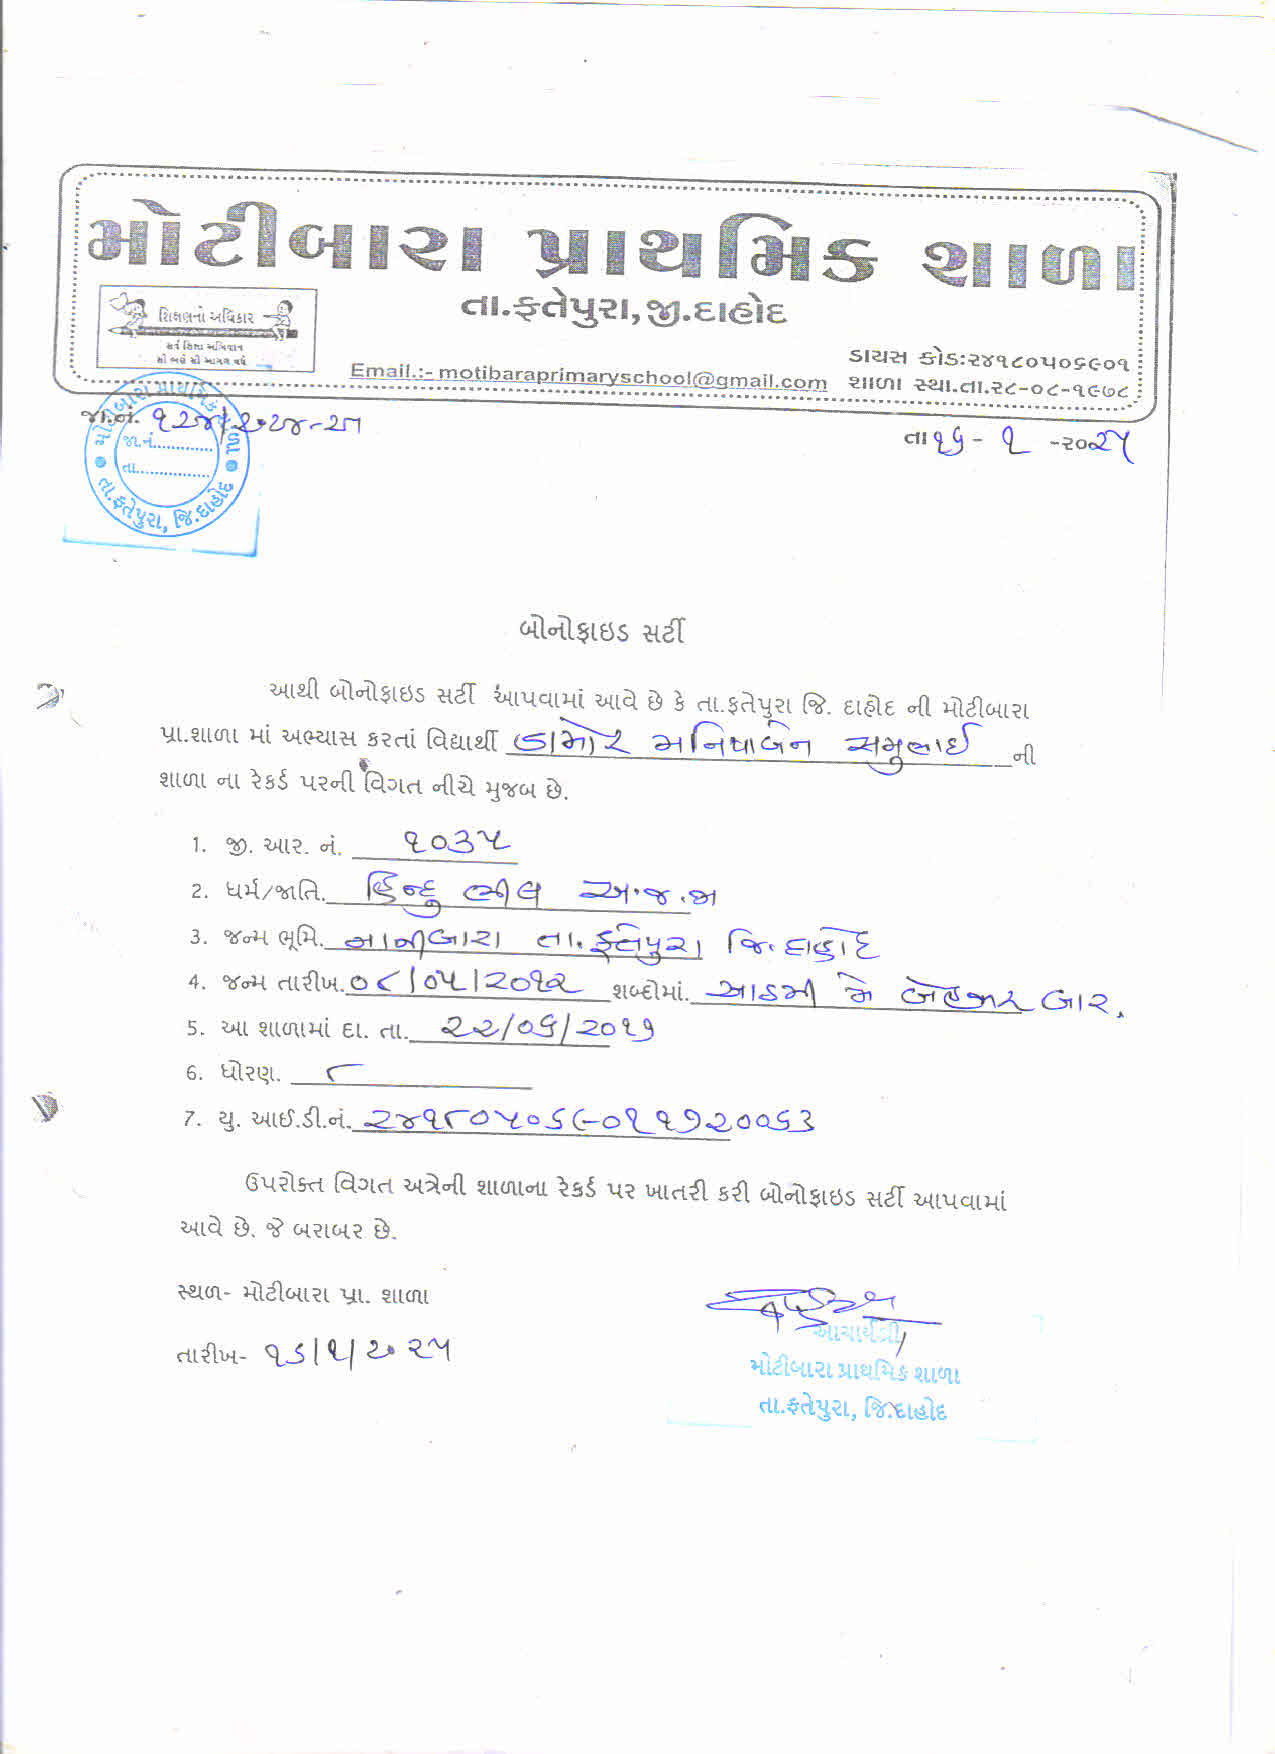 મોટીબારા પ્રાથમિક શાળા
તા.ફતેપુરા,જી.દાહોદ
શિક્ષણનો અધિકાર
સર્વ શિક્ષા અભિયાન
સૌ ભણે સૌ આગળ વધે
ડાયસ કોડ:૨૪૧૮૦૫૦૬૯૦૧
Email.:- motibaraprimaryschool@gmail.com શાળા સ્થા.તા.૨૮-૦૮-૧૯૭૮
જા.નં. ૧૨૪/૨૦૨૪-૨૫
તા ૧૬ - ૧ -૨૦૨૫
મોટીબારા પ્રાથમિક શાળા
જા.નં............
તા...............
તા.ફતેપુરા, જિ.દાહોદ
બોનોફાઇડ સર્ટી
આથી બોનોફાઇડ સર્ટી આપવામાં આવે છે કે તા.ફતેપુરા જિ. દાહોદ ની મોટીબારા
પ્રા.શાળા માં અભ્યાસ કરતાં વિદ્યાર્થી ડામોર મનિષાબેન સમુભાઈ ની
શાળા ના રેકર્ડ પરની વિગત નીચે મુજબ છે.
1. જી. આર. નં. ૧૦૩૫
2. ધર્મ/જાતિ. હિન્દુ ભીલ અ.જ.જા
3. જન્મ ભૂમિ. તા.ફતેપુરા જિ.દાહોદ
4. જન્મ તારીખ. ૦૮/૦૫/૨૦૧૨ શબ્દોમાં. આઠમી મે બેહજાર બાર.
5. આ શાળામાં દા. તા. ૨૨/૦૬/૨૦૧૭
6. ધોરણ. ૮
7. યુ. આઈ.ડી.નં. ૨૪૧૮૦૫૦૬૯૦૧૧૭૨૦૦૬૩
ઉપરોક્ત વિગત અત્રેની શાળાના રેકર્ડ પર ખાતરી કરી બોનોફાઇડ સર્ટી આપવામાં
આવે છે. જે બરાબર છે.
સ્થળ- મોટીબારા પ્રા. શાળા
તારીખ- ૧૬/૧/૨૦૨૫
આચાર્યશ્રી
મોટીબારા પ્રાથમિક શાળા
તા.ફતેપુરા, જિ.દાહોદ